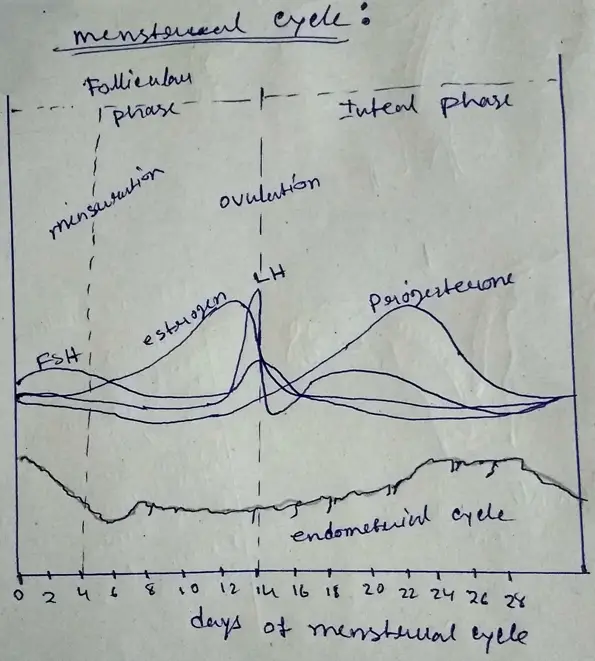 menstrual cycle:
Follicular
phase
luteal phase
mensuration
ovulation
LH
estrogen
progesterone
FSH
endometrial cycle
0 2 4 6 8 10 12 14 16 18 20 22 24 26 28
days of menstrual cycle